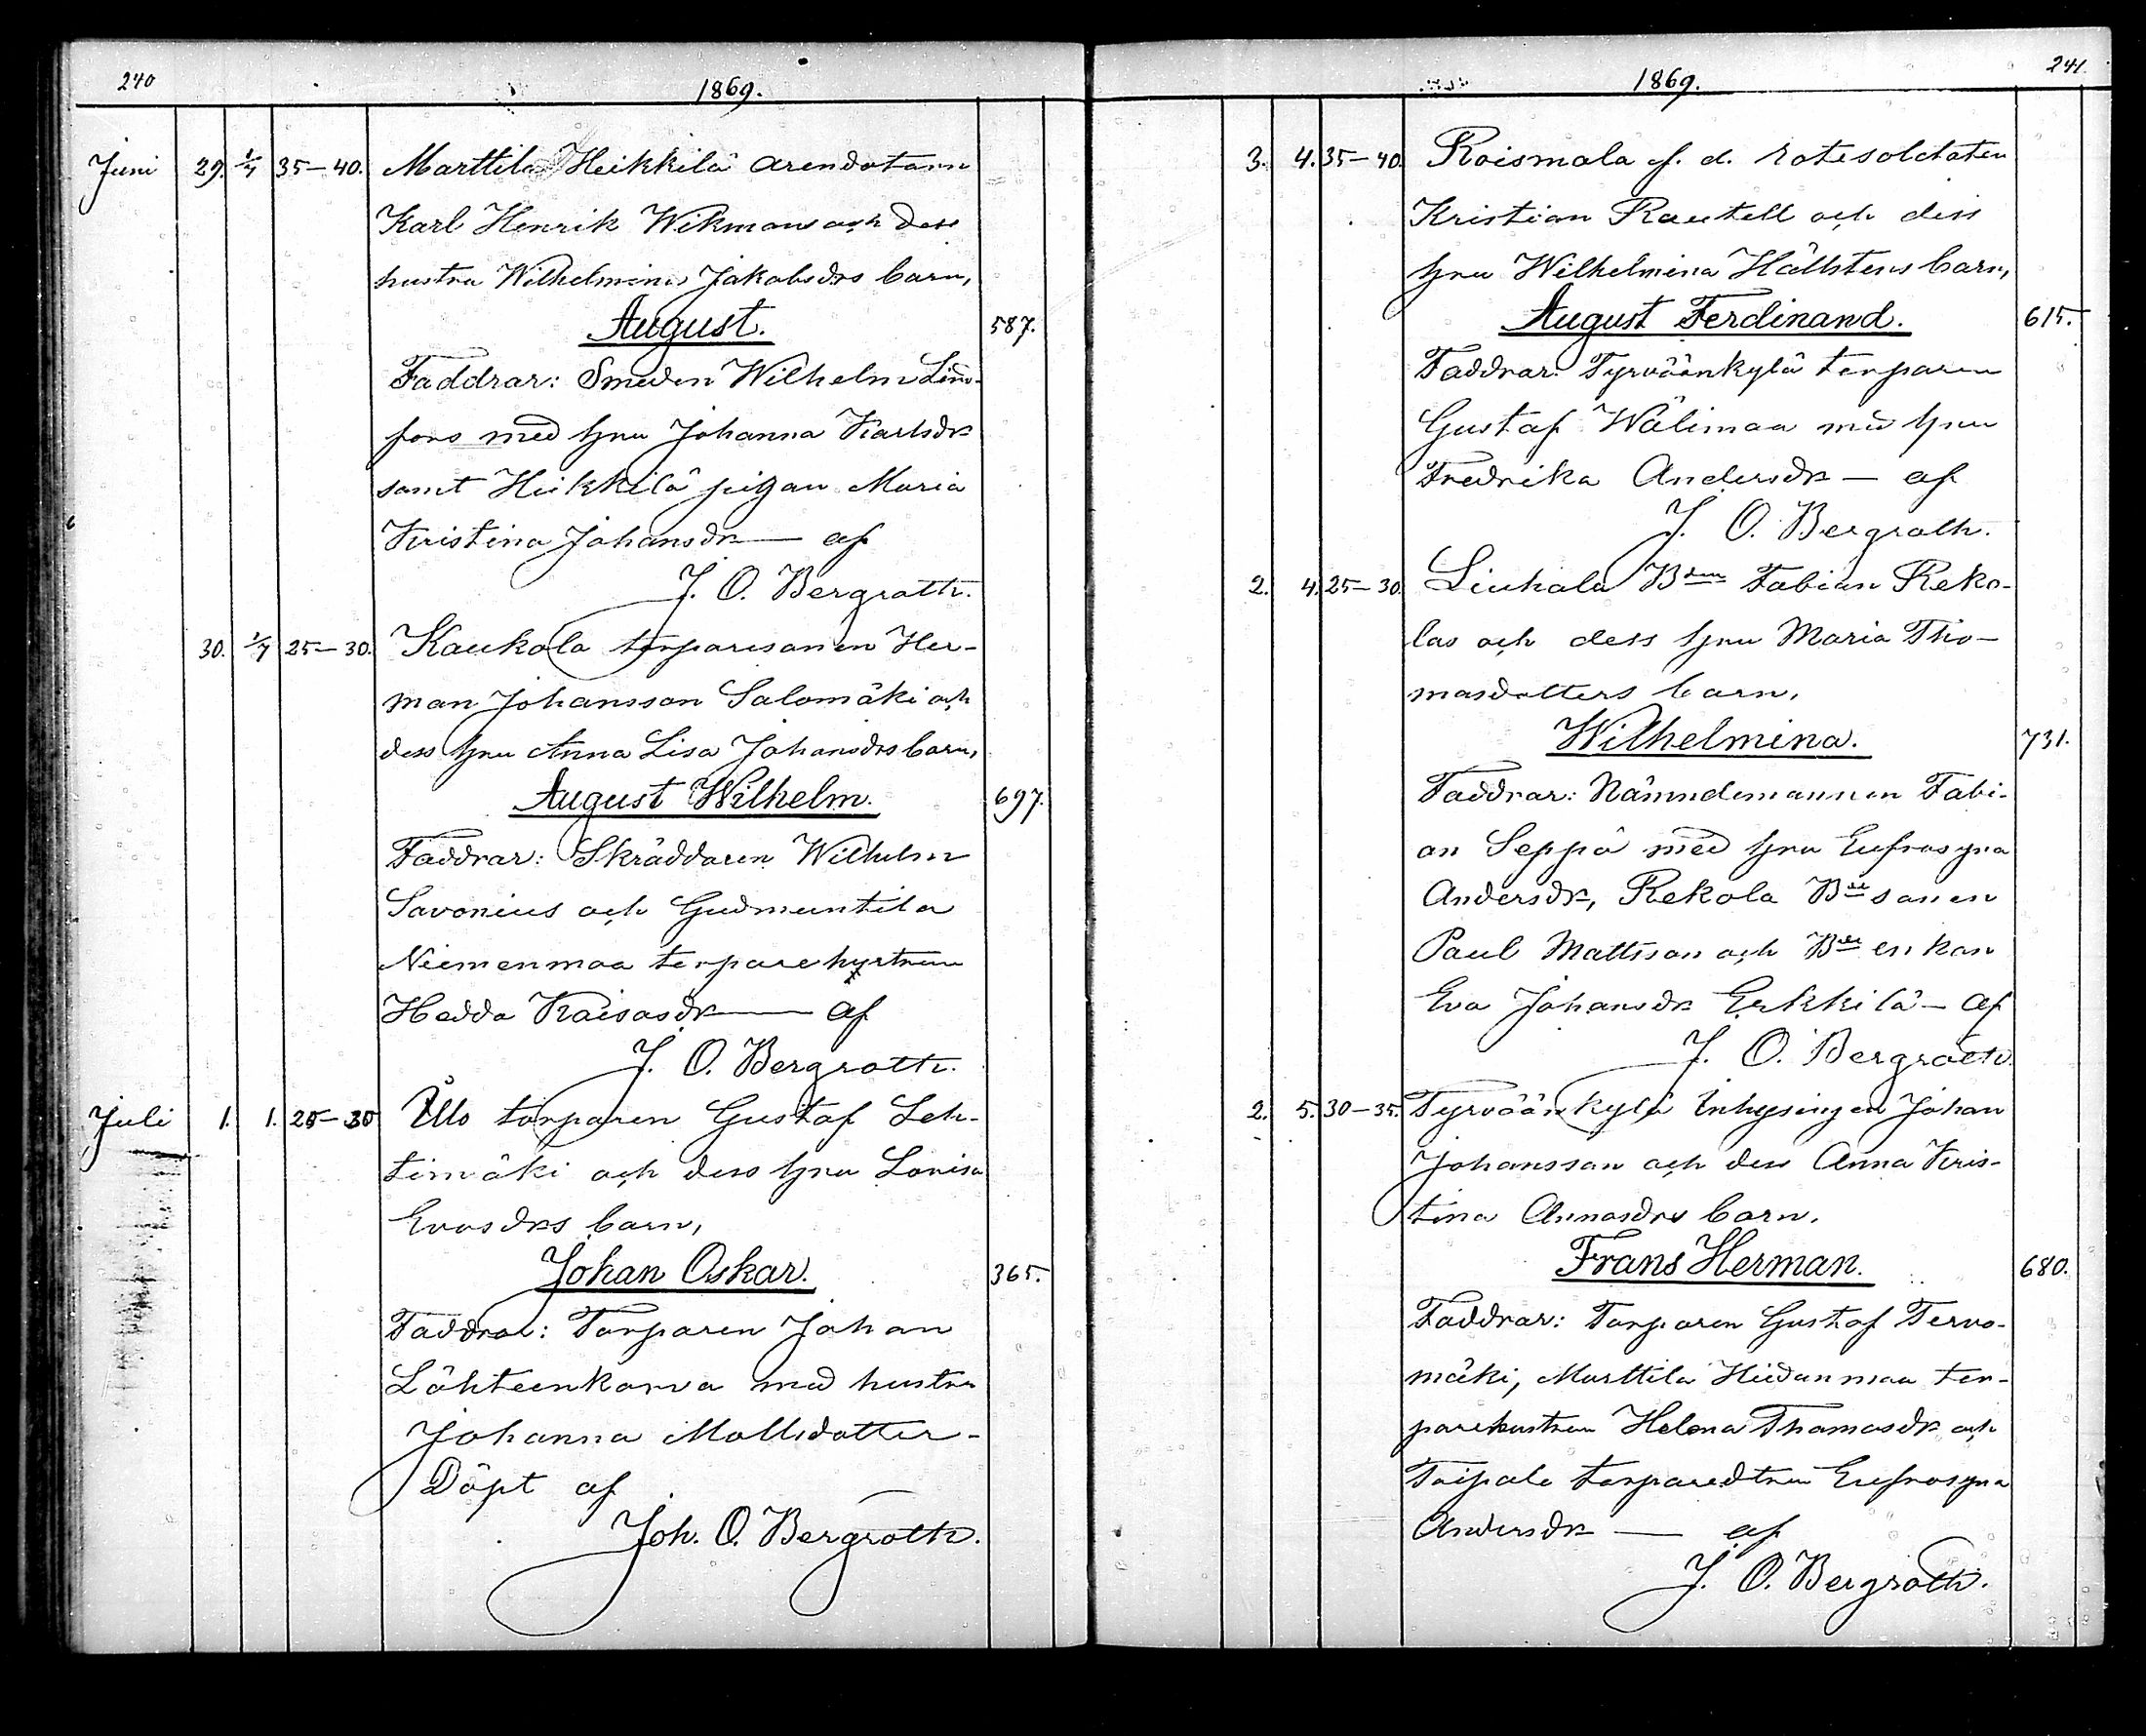 240
1869.
Juni 29. 1/7 35–40. Marttila Heikkilä arendatorn
Karl Henrik Wikmans och dess
hustru Wilhelmina Jakobsdrs barn,
August. 587.
Faddrar: Smeden Wilhelm Lind-
fors med hru Johanna Karlsdr
samt Heikkilä pigan Maria
Kristina Johansdr — af
J. O. Bergroth.
30. 1/7 25–30. Kaukola torparesonen Her-
man Johansson Salomäki och
dess hru Anna Lisa Johansdrs barn,
August Wilhelm. 697.
Faddrar: Skräddaren Wilhelm
Savonius och Gudmuntila
Niemenmaa torparehustrun
Hedda Kaisasdr — af
J. O. Bergroth.
Juli 1. 1. 25–30 Ulo torparen Gustaf Leh-
timäki och dess hru Lovisa
Evasdrs barn,
Johan Oskar. 365.
Faddrar: Torparen Johan
Lähteenkorva med hustru
Johanna Mattsdotter–
Döpt af
Joh. O. Bergroth.
241.
1869.
3. 4. 35–40. Roismala f. d. rotesoldaten
Kristian Rautell och dess
hru Wilhelmina Hällstens barn,
August Ferdinand. 615.
Faddrar: Tyrväänkylä torparen
Gustaf Wälimaa med hru
Fredrika Andersdr — af
J. O. Bergroth.
2. 4. 25–30. Liuhala Bden Fabian Reko-
las och dess hru Maria Tho-
masdotters barn,
Wilhelmina. 731.
Faddrar: Nämndemannen Fabi-
an Seppä med hru Eufrosyna
Andersdr, Rekola Bdesonen
Paul Mattsson och Bdeenkan
Eva Johansdr Erkkilä — af
J. O. Bergroth.
2. 5. 30–35. Tyrväänkylä inhysingen Johan
Johansson och dess Anna Kris-
tina Annasdrs barn.
Frans Herman. 680.
Faddrar: Torparen Gustaf Tervo-
mäki, Marttila Hiidanmaa tor-
parehustrun Helena Thomasdr och
Toipale torparedtrun Eufrosyna
Andersdr — af
J. O. Bergroth.